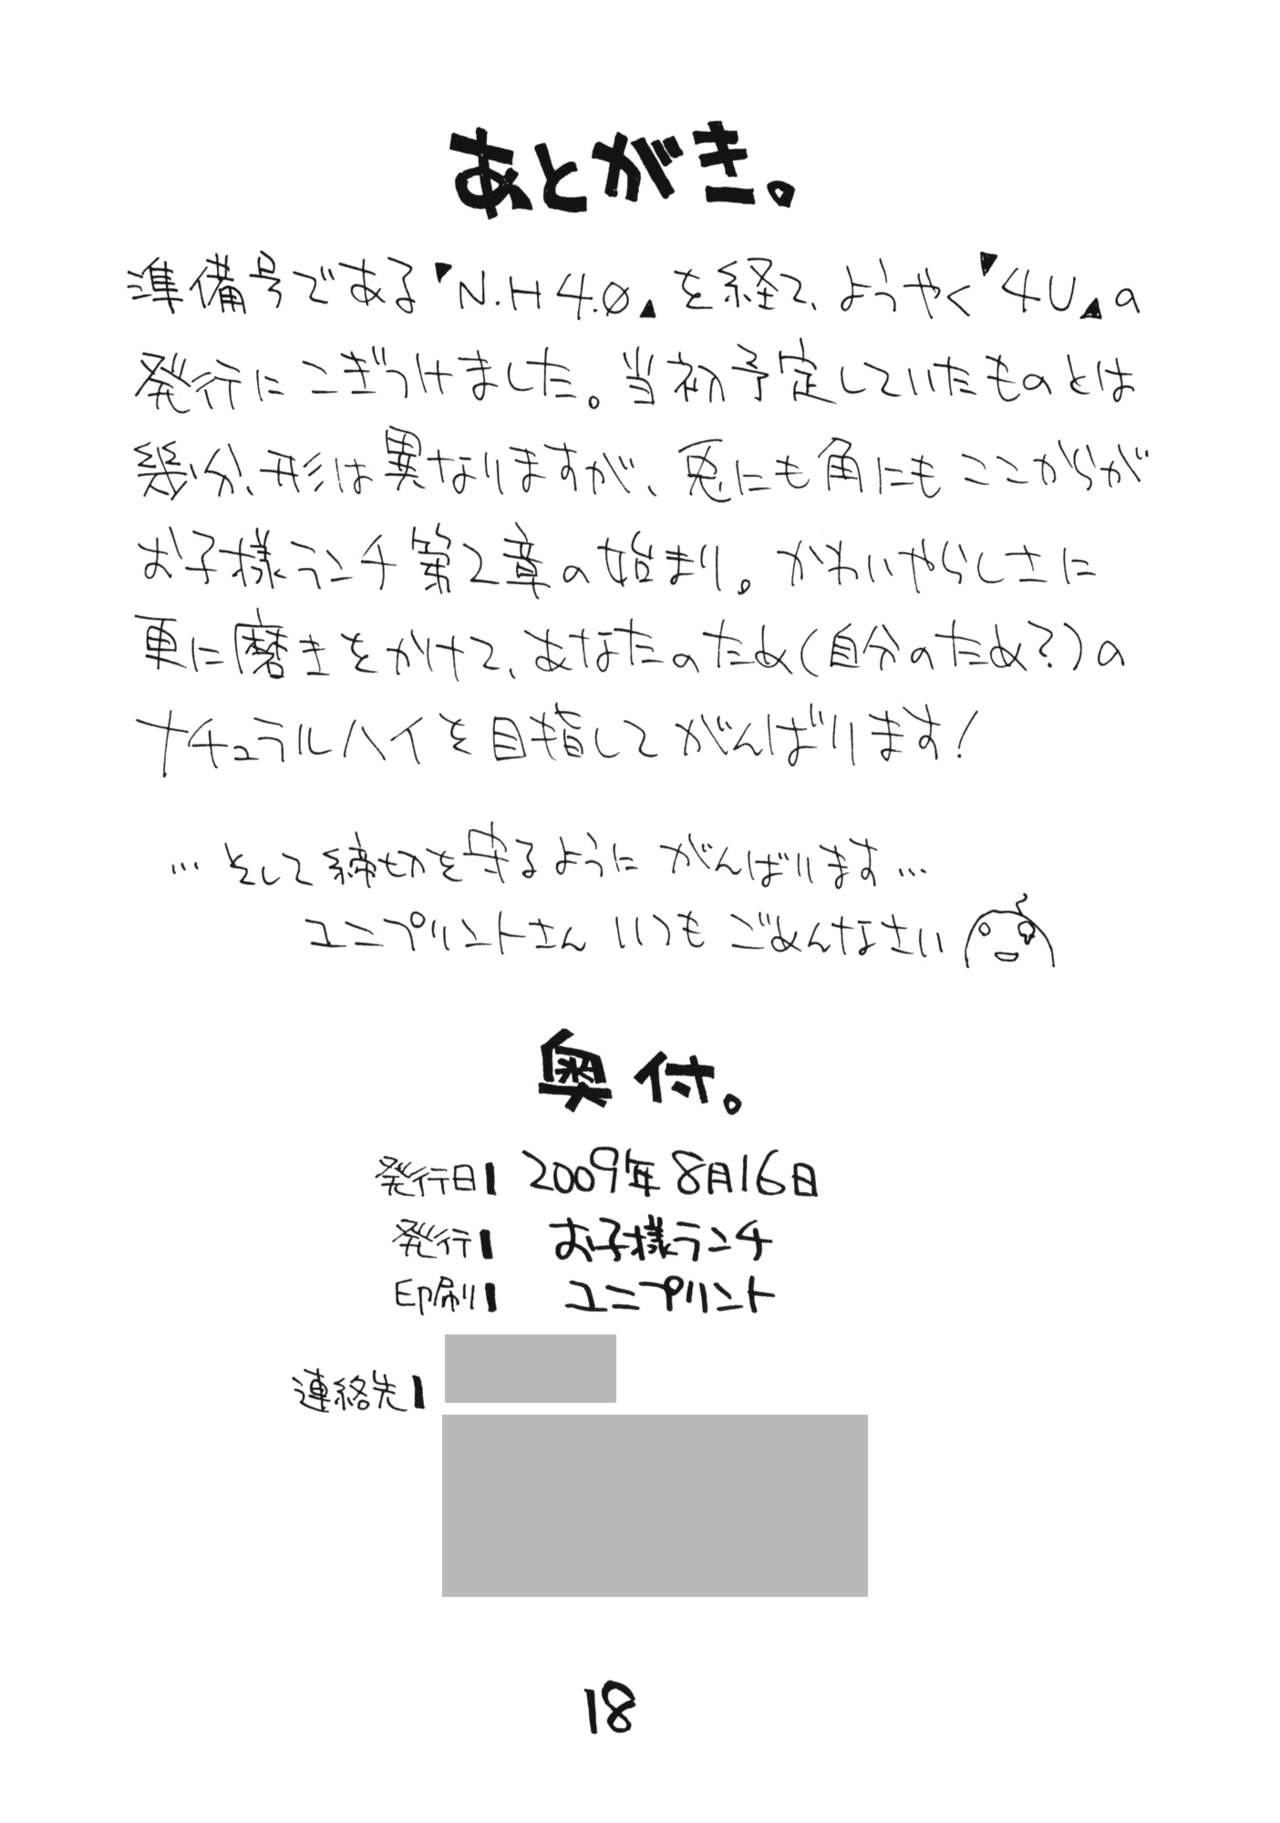 あとがき。
準備号である『N.H4.0』を経て、ようやく『4U』の
発行にこぎつけました。当初予定していたものとは
幾分、形は異なりますが、兎にも角にもここからが
お子様ランチ第2章の始まり。かわいやらしさに
更に磨きをかけて、あなたのため(自分のため?)の
ナチュラルハイを目指してがんばります!
…そして締切を守るようにがんばります…
ユニプリントさんいつもごめんなさい
奥付。
発行日| 2009年8月16日
発行| お子様ランチ
印刷| ユニプリント
連絡先|
18